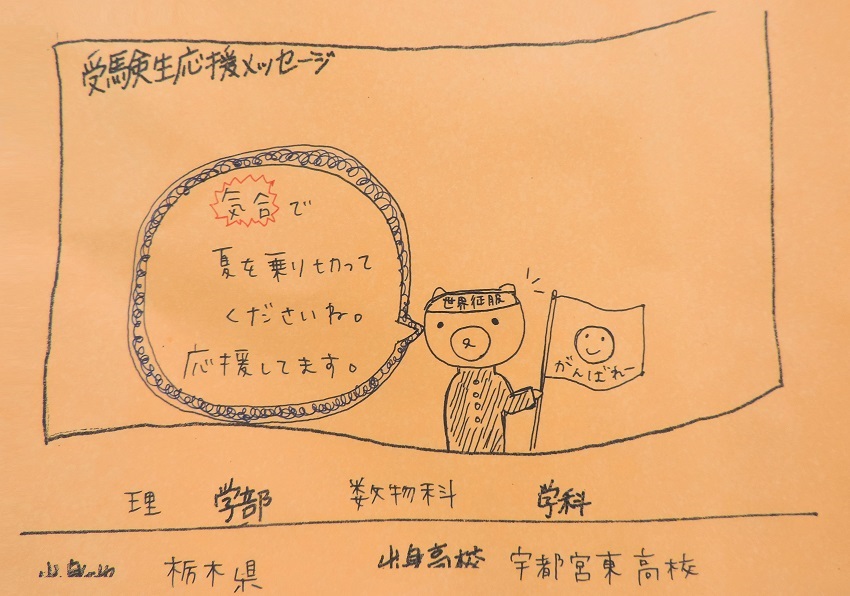 受験生応援メッセージ
気合で
夏を乗り切って
くださいね。
応援してます。
世界征服
がんばれー
理 学部 数物科 学科
栃木県 出身高校 宇都宮東高校